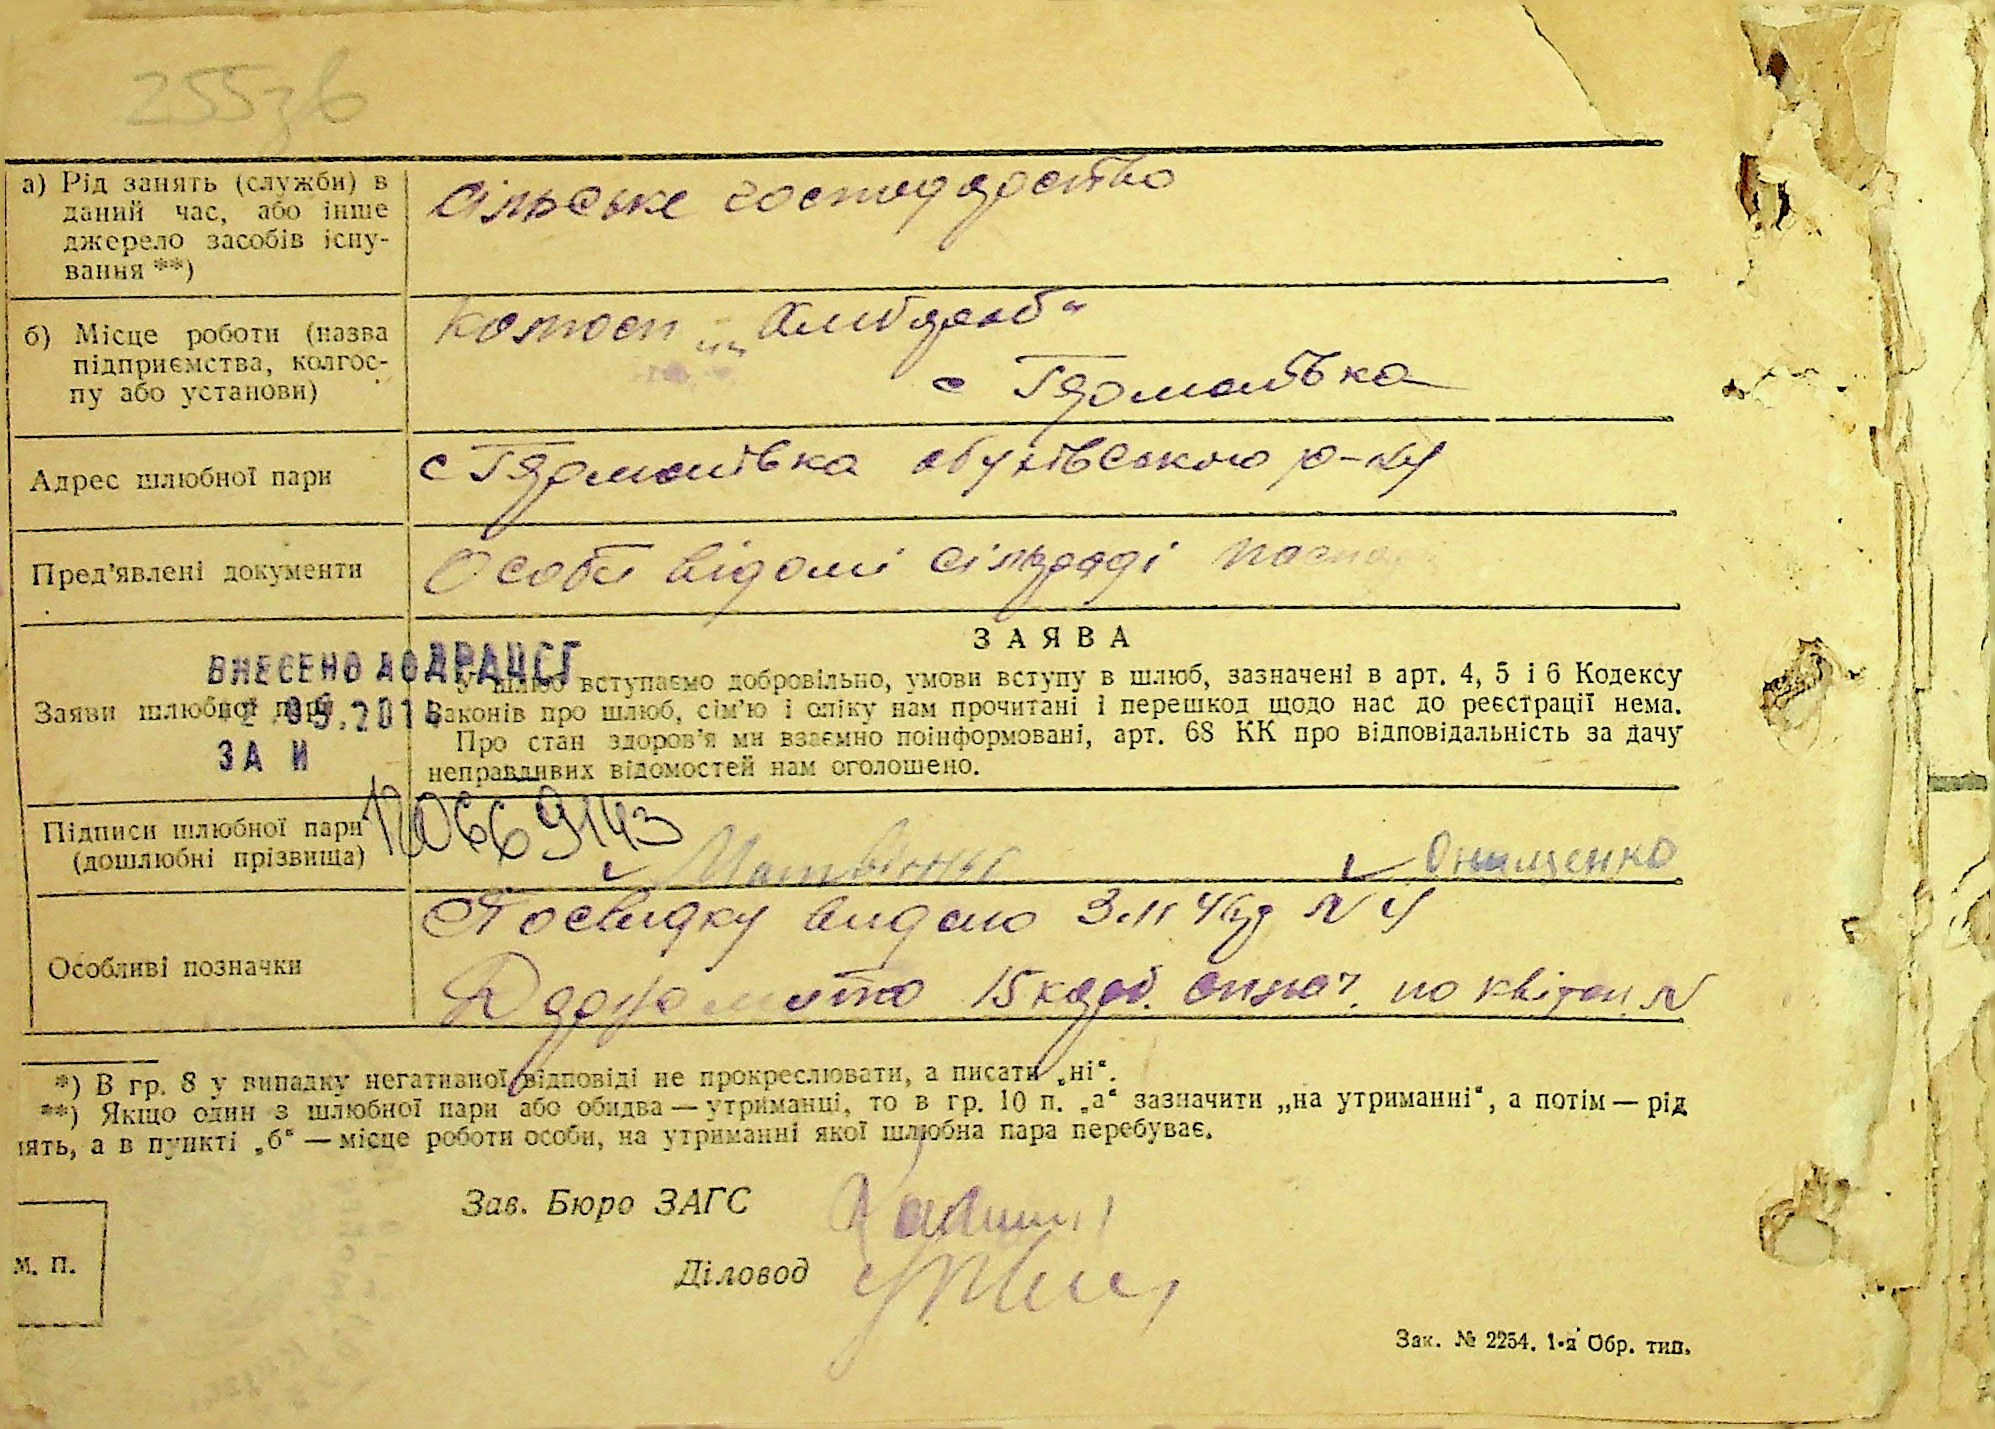 255зв
а) Рід занять (служби) в
даний час, або інше
джерело засобів існу-
вання **)
сільське господарство
б) Місце роботи (назва
підприємства, колгос-
пу або установи)
Колгосп „Хлібороб“
с Германівка
Адрес шлюбної пари
с Германівка обухівського р-ну
Пред’явлені документи
Особи відомі сільраді
ЗАЯВА
ВНЕСЕНО ДО ДРАЦСГ
Заяви шлюбної пари
ЗА И
У шлюб вступаємо добровільно, умови вступу в шлюб, зазначені в арт. 4, 5 і 6 Кодексу
Законів про шлюб, сім’ю і опіку нам прочитані і перешкод щодо нас до реєстрації нема.
Про стан здоров’я ми взаємно поінформовані, арт. 68 КК про відповідальність за дачу
неправдивих відомостей нам оголошено.
Підписи шлюбної пари
(дошлюбні прізвища)
Онищенко
Особливі позначки
Посвідку видано № 4
Держмито 15 карб. сплач. по квітан. №
*) В гр. 8 у випадку негативної відповіді не прокреслювати, а писати „ні“.
**) Якщо один з шлюбної пари або обидва — утриманці, то в гр. 10 п. „а“ зазначити „на утриманні“, а потім — рід
нять, а в пункті „б“ — місце роботи особи, на утриманні якої шлюбна пара перебуває.
Зав. Бюро ЗАГС
М. П.
Діловод
Зак. № 2254. 1-а Обр. тип.